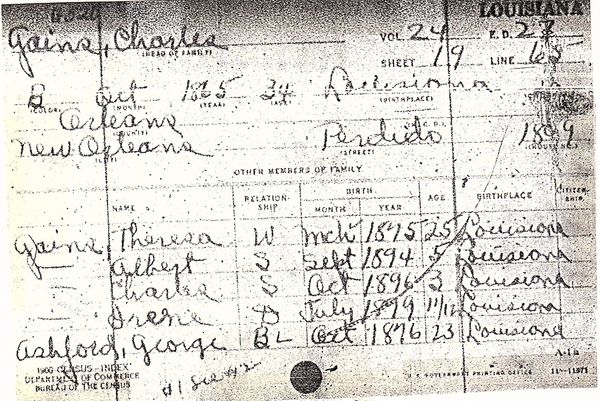 LOUISIANA
Gains, Charles VOL. 24 E.D. 27
(HEAD OF FAMILY)
SHEET 19 LINE 65
B Oct 1865 34 Louisiana
(COLOR) (MONTH) (YEAR) (AGE) (BIRTHPLACE)
Orleans
(COUNTY)
New Orleans Perdido 1899
(CITY) (STREET) (HOUSE NO.)
OTHER MEMBERS OF FAMILY
NAME RELATION-SHIP BIRTH MONTH YEAR AGE BIRTHPLACE CITIZEN-SHIP
Gains, Theresa W Mch 1875 25 Louisiana
— Albert S Sept 1894 5 Louisiana
— Charles S Oct 1896 3 Louisiana
— Irene D July 1899 11/12 Louisiana
Ashford, George BL Oct 1876 23 Louisiana
1900 CENSUS—INDEX
DEPARTMENT OF COMMERCE
BUREAU OF THE CENSUS
U. S. GOVERNMENT PRINTING OFFICE 11—11871
A-1a